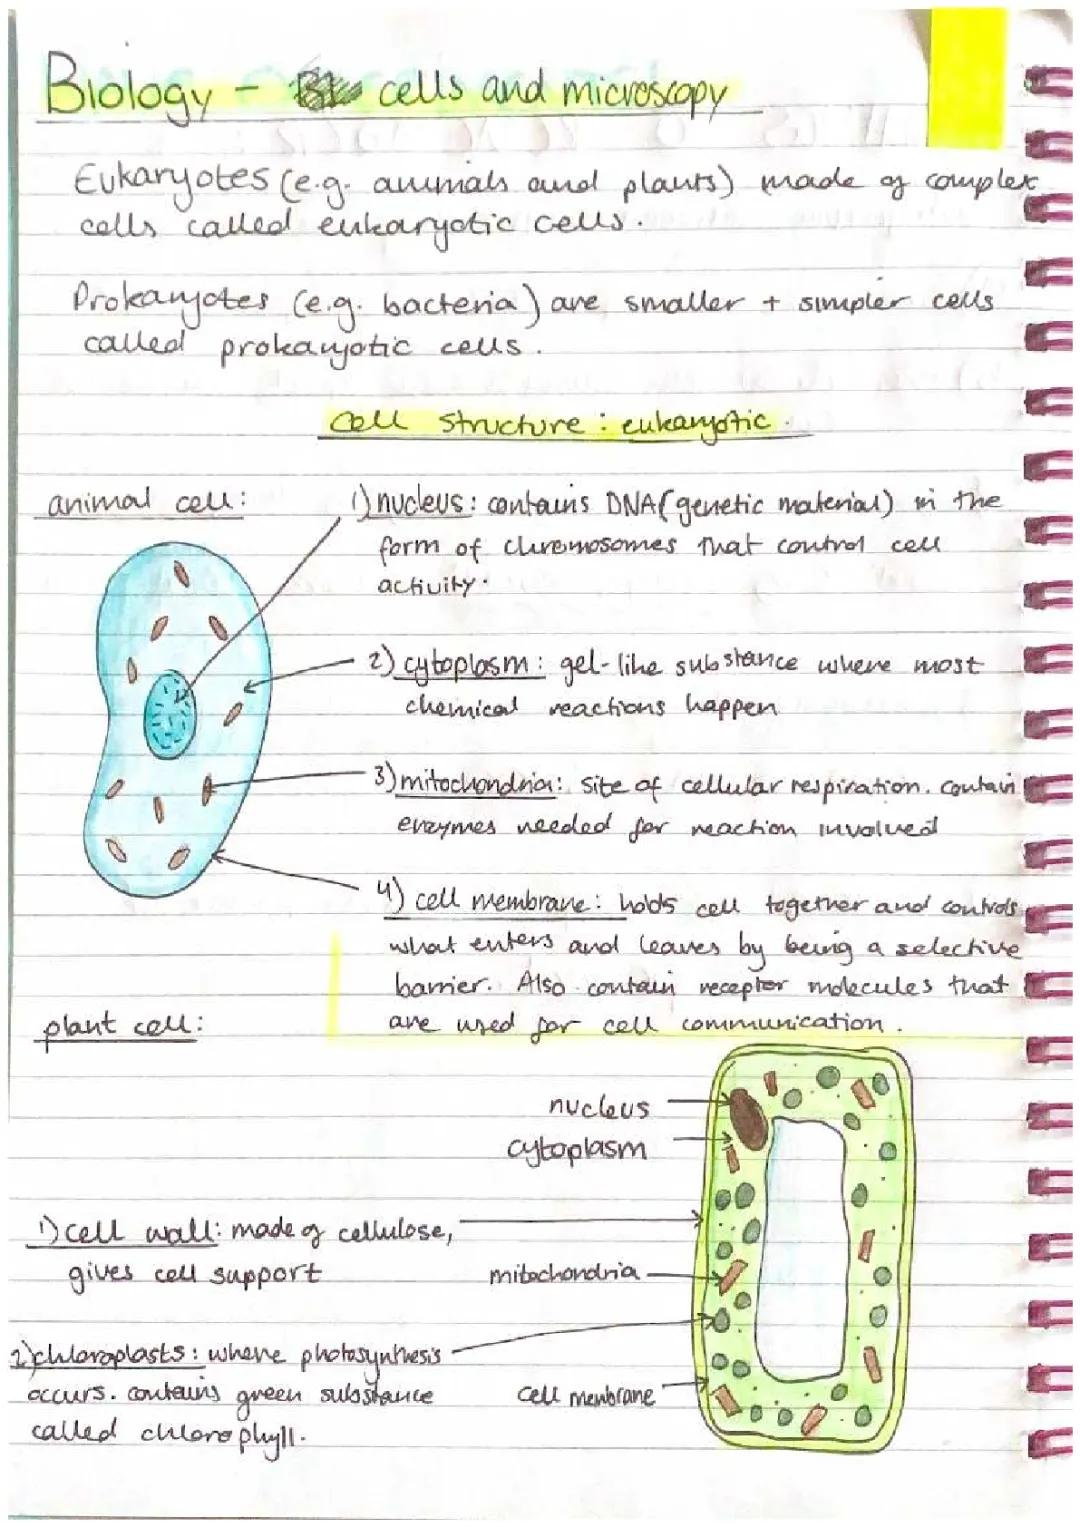 Biology - cells and microscopy
Eukaryotes (e.g. animals and plants) made of complex
cells called eukaryotic cells.
Prokaryotes (e.g. bacteria) are smaller + simpler cells
called prokaryotic cells.
Cell structure : eukaryotic.
animal cell:
1) nucleus: contains DNA (genetic material) in the
form of chromosomes that control cell
activity.
2) cytoplasm: gel-like substance where most
chemical reactions happen
3) mitochondria: site of cellular respiration. contain
enzymes needed for reaction involved
4) cell membrane: holds cell together and controls
what enters and leaves by being a selective
barrier. Also contain receptor molecules that
are used for cell communication.
plant cell:
nucleus
cytoplasm
1) cell wall: made of cellulose,
gives cell support
mitochondria
2) chloroplasts: where photosynthesis
occurs. contains green substance
called chlorophyll.
cell membrane